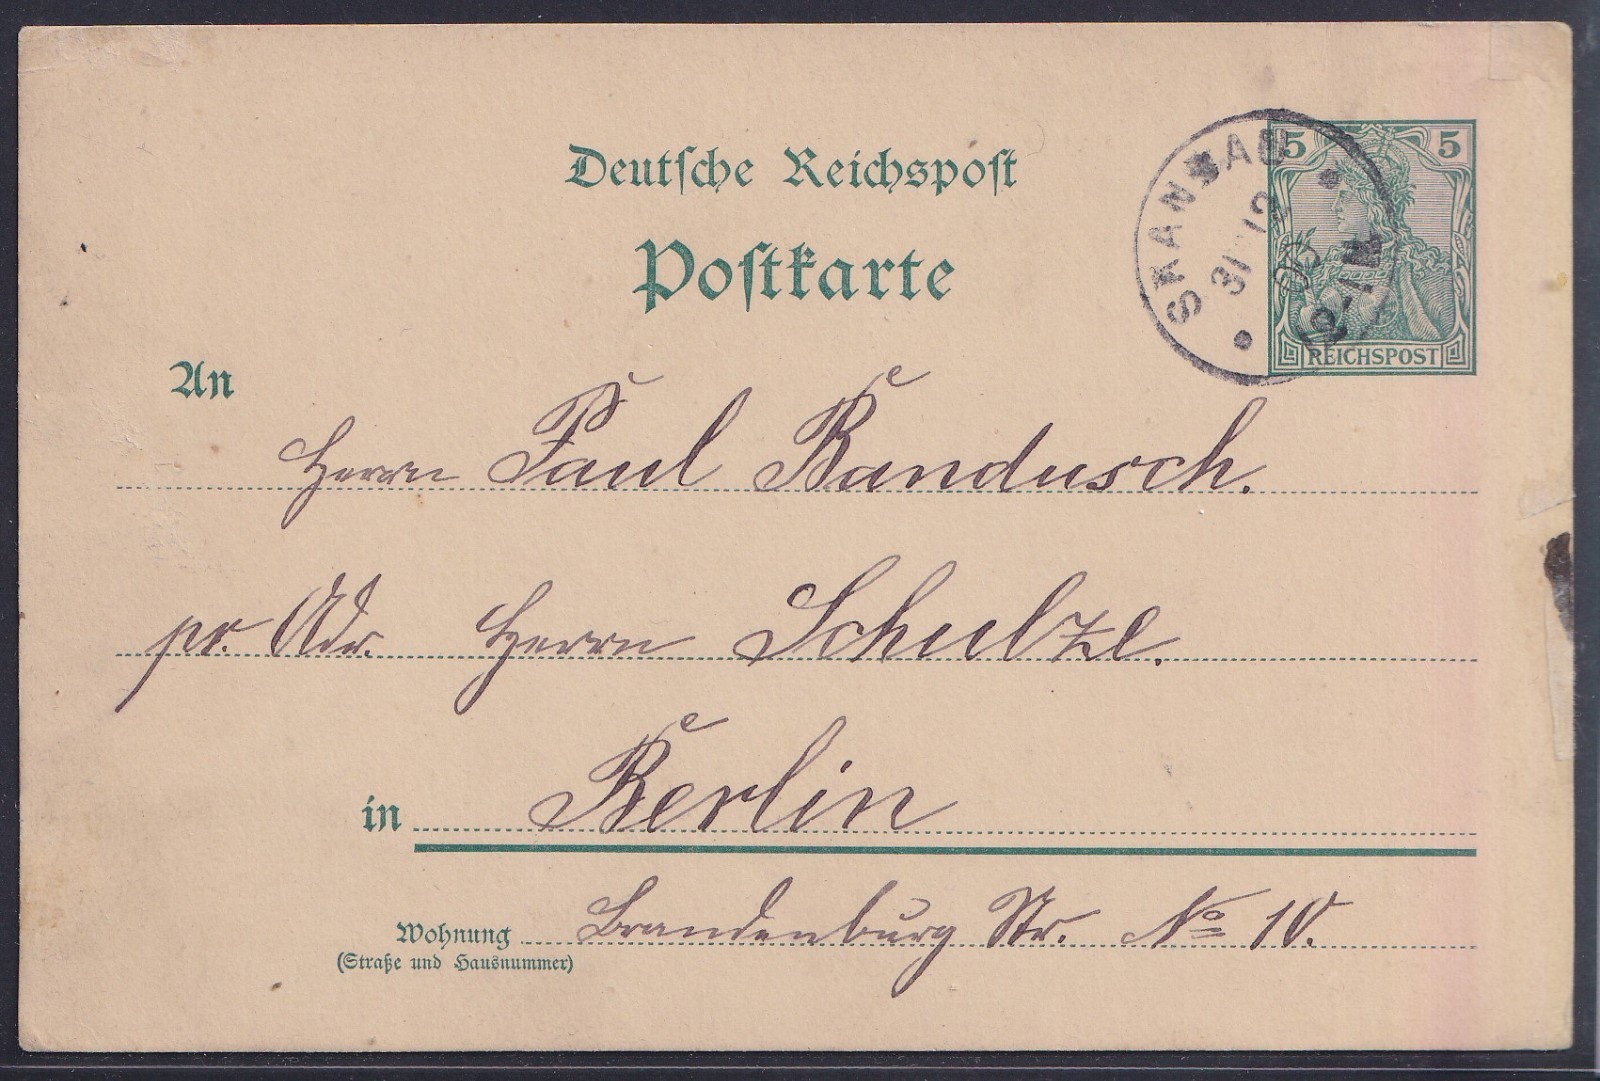 Deutsche Reichspost
Postkarte
5 5
REICHSPOST
31 12
An
Herrn Paul Bandusch.
pr. Adr. Herrn Schulze.
in Berlin
Wohnung Brandenburg Str. No 10.
(Straße und Hausnummer)